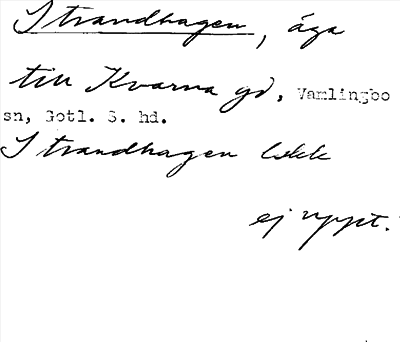 Strandhagen, äga
till Kvarna gd, Vamlingbo
sn, Gotl. S. hd.
Strandhagen lokk
ej uppt.